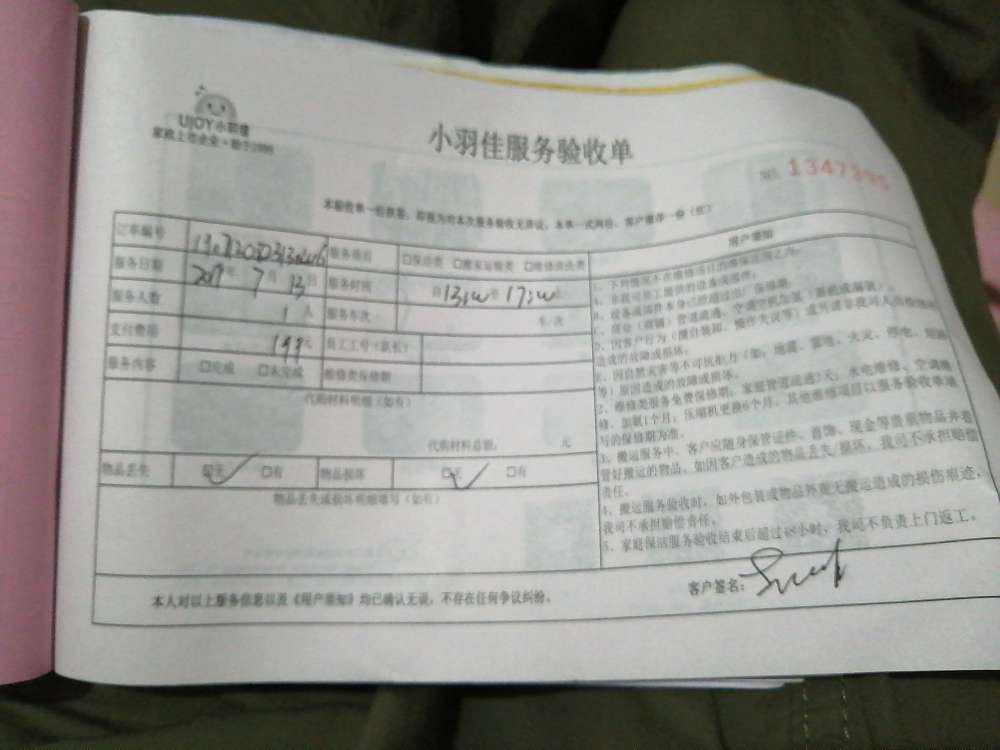 UJOY小羽佳
家政上市企业·始于1999
小羽佳服务验收单
NO. 1347395
本验收单一经签署，即视为对本次服务验收无异议，本单一式两份，客户留存一份（红）
订单编号 服务项目 □保洁类 □搬家运输类 □维修清洗类
服务日期 年 7 月 13 日 服务时间 自 13:00 至 17:00
服务人数 1 人 服务车次 车/次
支付费用 199 元 员工工号（队长）
服务内容 □完成 □未完成 维修类保修期
代购材料明细（如有）
代购材料总额： 元
物品丢失 □无 ✓ □有 物品损坏 □无 ✓ □有
物品丢失或损坏明细填写（如有）
用户须知
1、下列情况不在维修项目的维保范围之内：
A、非我司员工提供的设备或部件；
B、设备或部件本身已经超过出厂保修期。
D、因客户行为（擅自装卸、操作失误等）或
造成的故障或损坏。
E、因自然灾害等不可抗拒力（如：地震、雷电、火灾、停电、
等）原因造成的故障或损坏。
2、维修类服务免费保修期：家庭管道疏通3天，水电维修、空调维
修、加氟1个月；压缩机更换6个月。其他维修项目以服务验收单填
写的保修期为准。
3、搬运服务中，客户应随身保管证件、首饰、现金等贵重物品并看
管好搬运的物品。如因客户造成的物品丢失/损坏，我司不承担赔偿
责任。
4、搬运服务验收时，如外包装或物品外观无搬运造成的损伤痕迹，
我司不承担赔偿责任。
5、家庭保洁服务验收结束后超过48小时，我司不负责上门返工。
本人对以上服务信息以及《用户须知》均已确认无误，不存在任何争议纠纷。
客户签名：